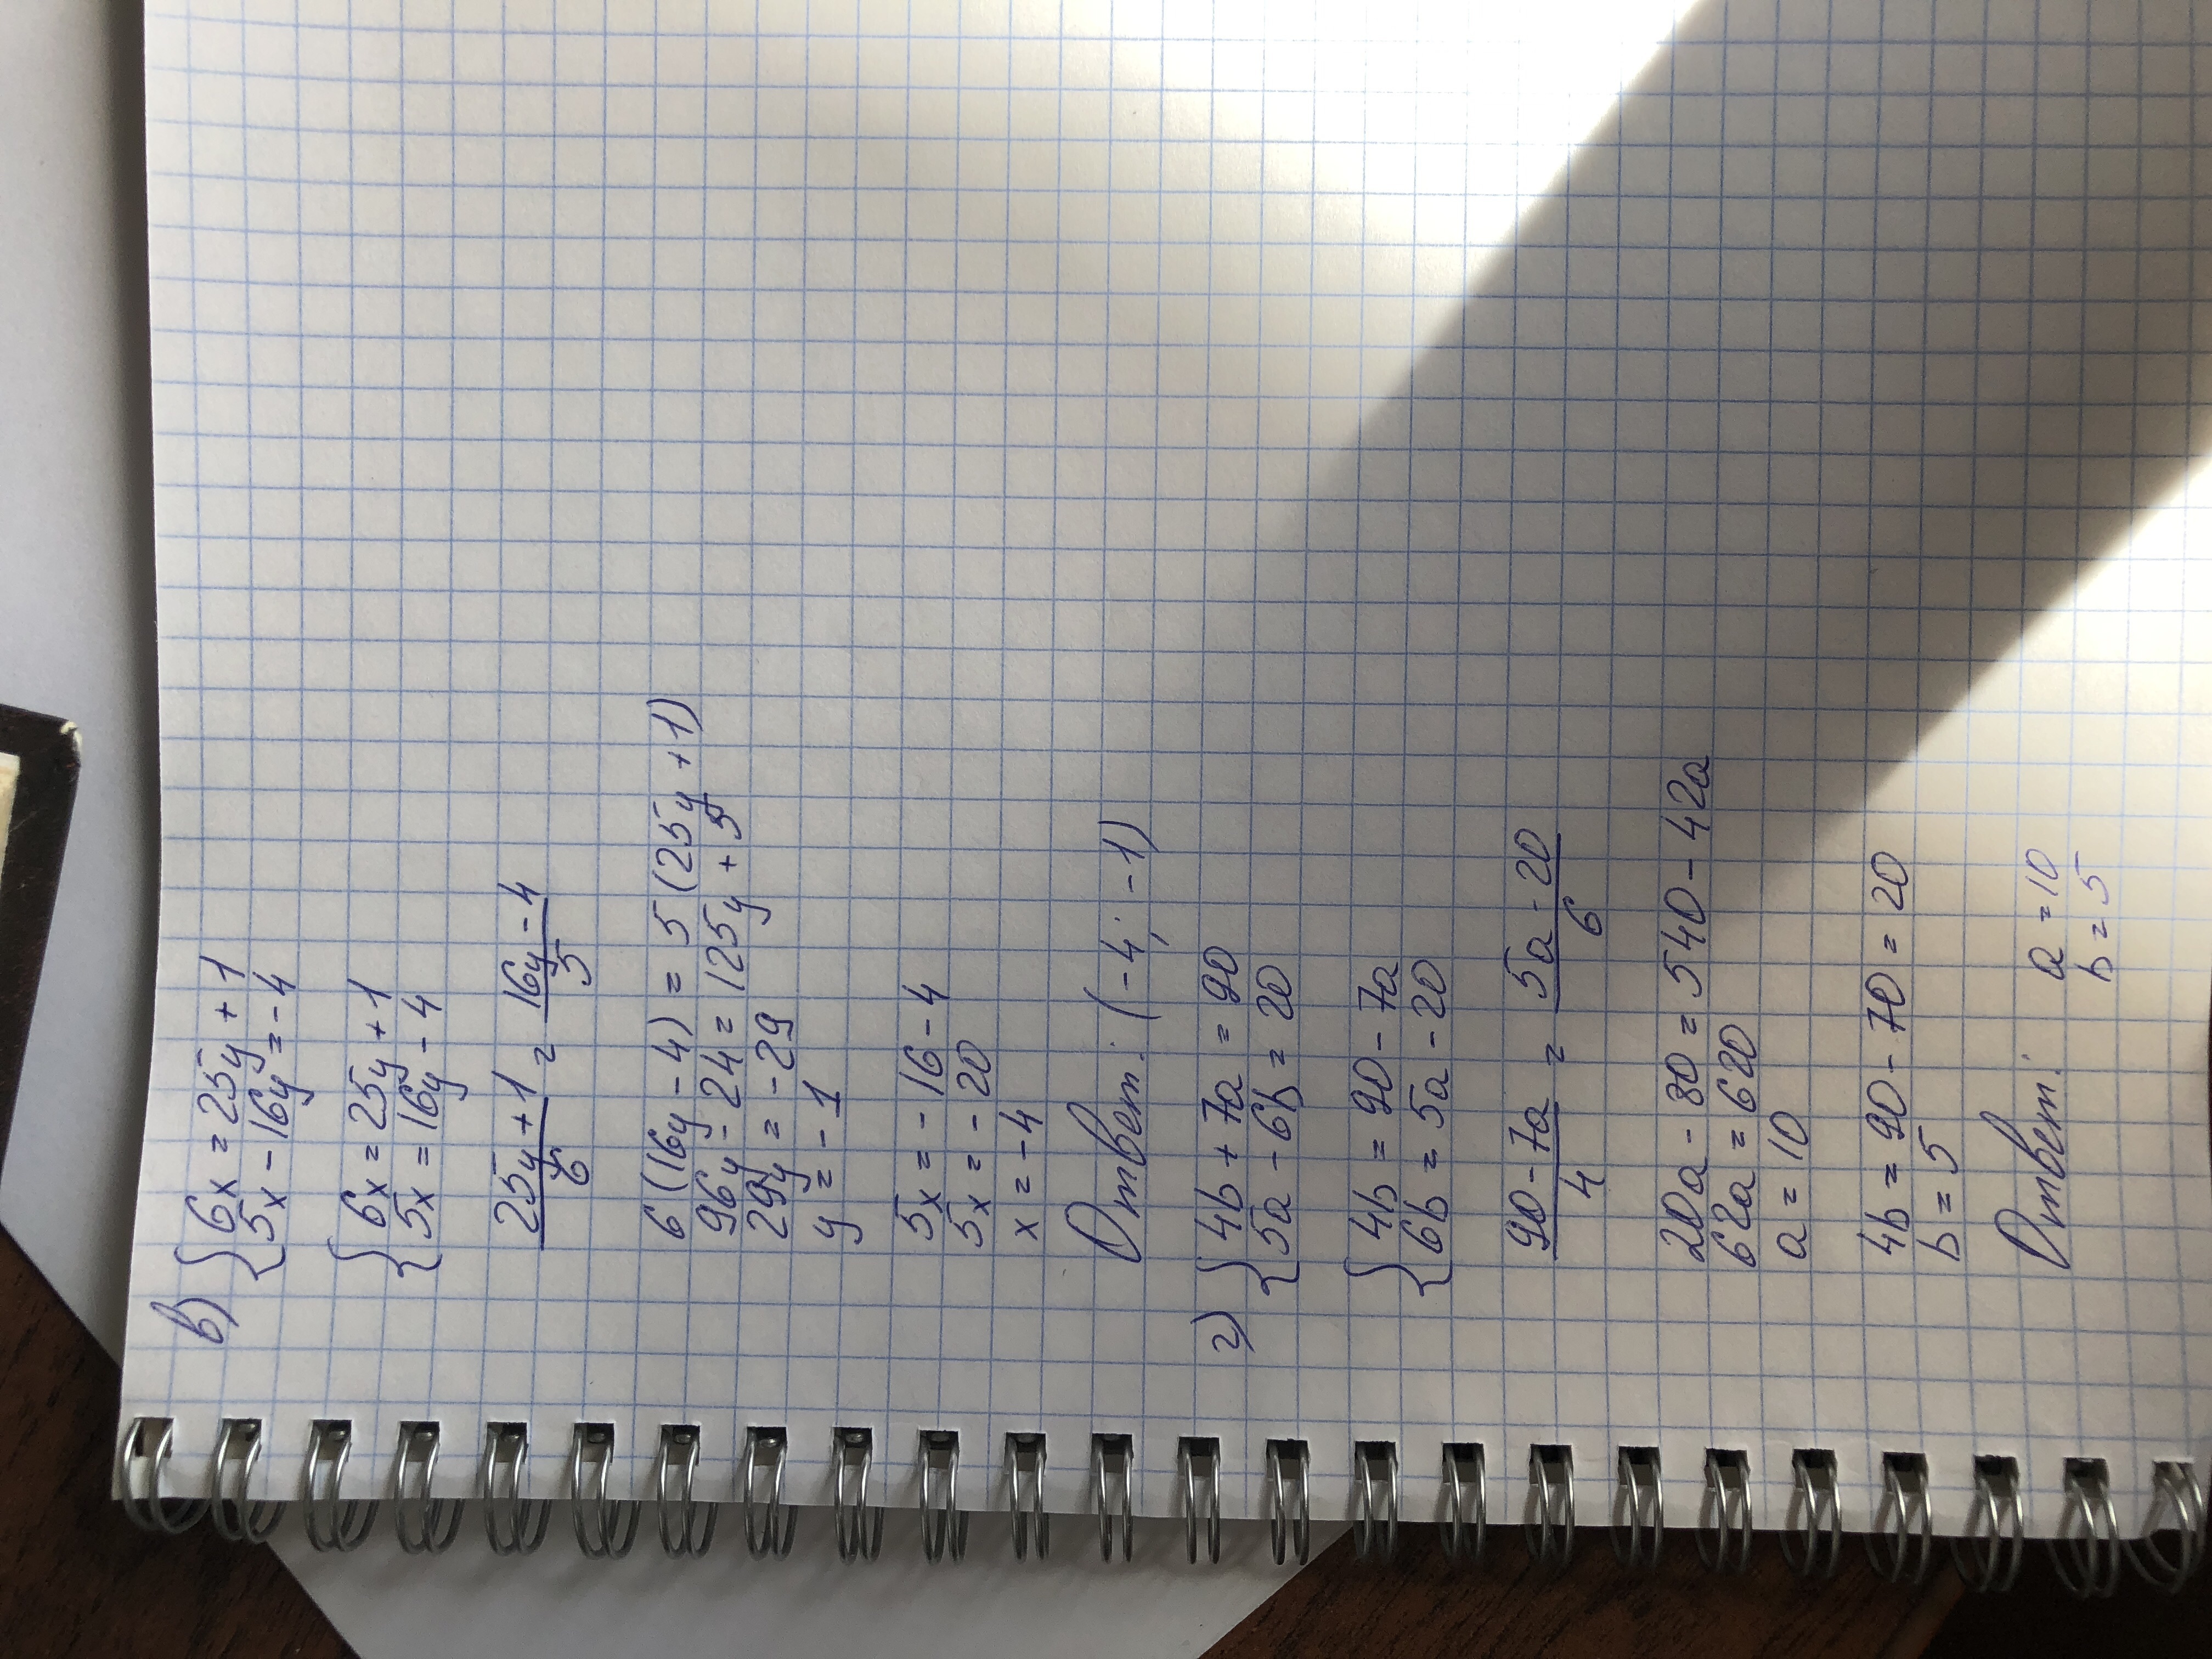 в) { 6x = 25y + 1
5x - 16y = -4
{ 6x = 25y + 1
5x = 16y - 4
25y + 1 / 6 = 16y - 4 / 5
6 (16y - 4) = 5 (25y + 1)
96y - 24 = 125y + 5
29y = -29
y = -1
5x = -16 - 4
5x = -20
x = -4
Ответ: (-4; -1)
г) { 4b + 7a = 90
5a - 6b = 20
{ 4b = 90 - 7a
6b = 5a - 20
90 - 7a / 4 = 5a - 20 / 6
20a - 80 = 540 - 42a
62a = 620
a = 10
4b = 90 - 70 = 20
b = 5
Ответ: a = 10
b = 5